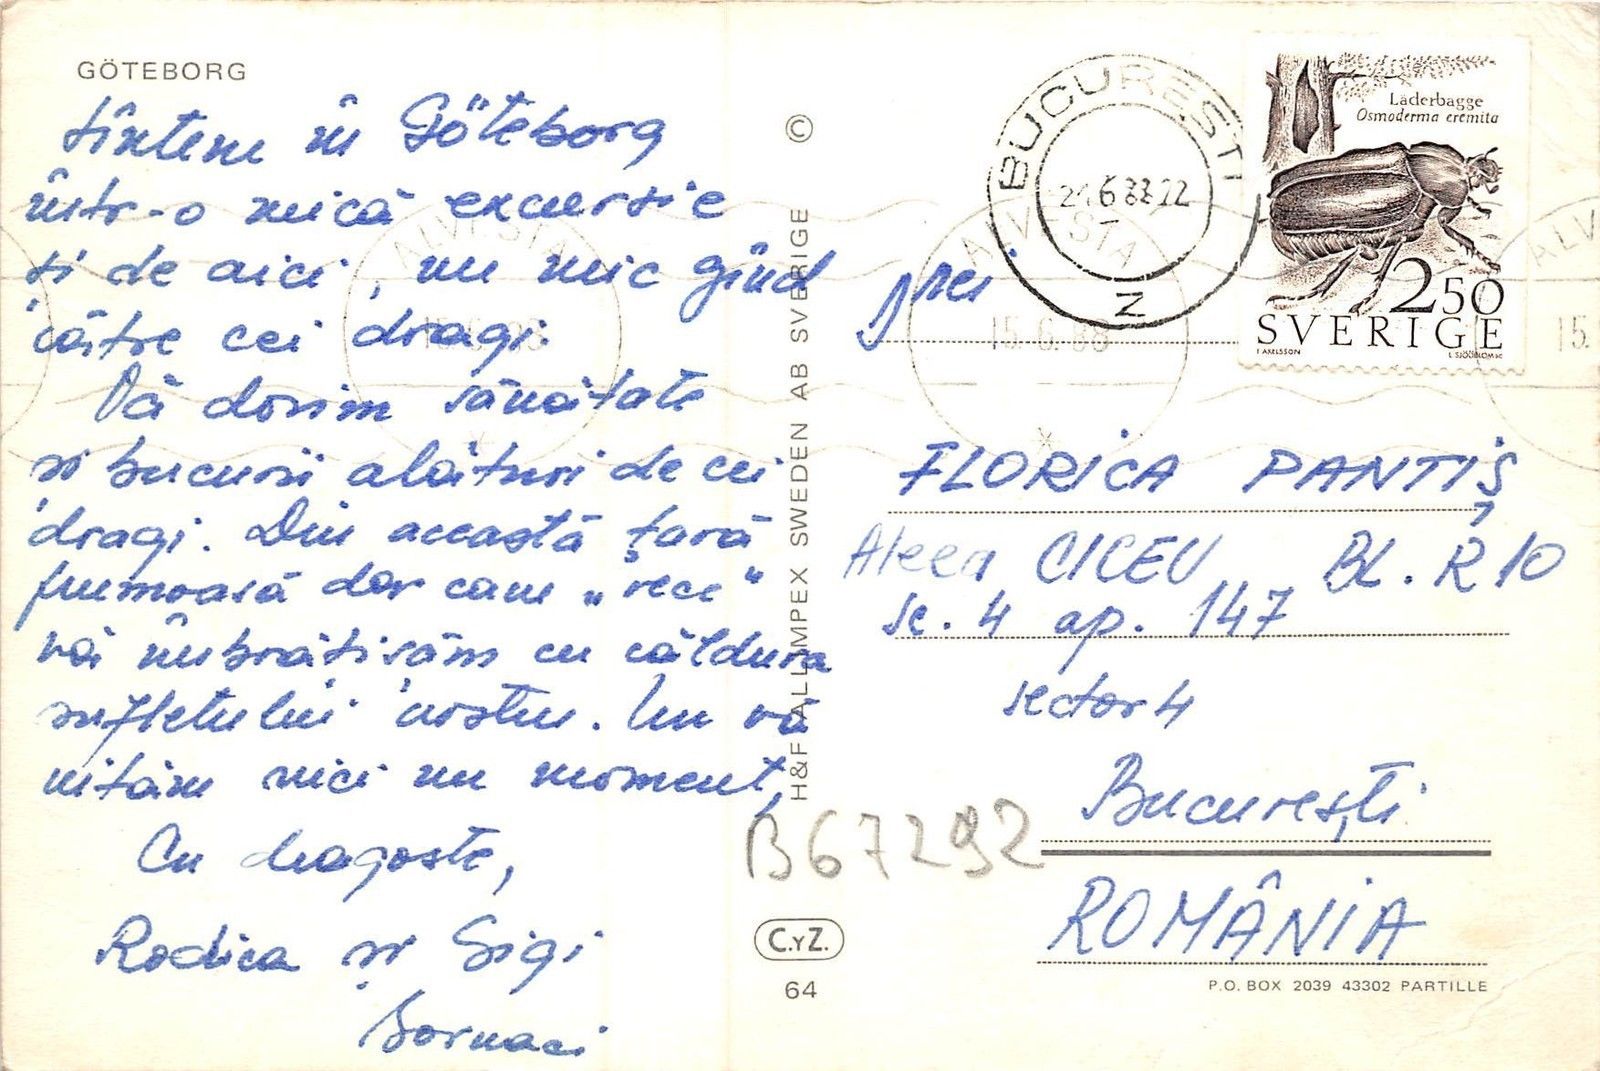 GÖTEBORG
Sîntem în Göteborg
într-o mică excursie
și de aici, un mic gînd
către cei dragi.
Vă dorim sănătate
și bucurii alături de cei
dragi. Din această țară
frumoasă dar cam „rece"
vă îmbrățișăm cu căldura
sufletului nostru. Nu vă
uităm nici un moment,
Cu dragoste,
Rodica și Gigi
Bornaci
©
H&F ALLIMPEX SWEDEN AB SVERIGE
B67292
C.Y Z.
64
BUCURESTI
21.6.88.22
Z
ALVESTA
15.6.88
ALVESTA
15.6.88
ALV
15.
Läderbagge
Osmoderma eremita
2 50
SVERIGE
T AXELSSON
L SJÖÖBLOM SC
FLORICA PANTIȘ
Aleea CICEU, BL. R10
sc. 4 ap. 147
sector 4
București
ROMÂNIA
P.O. BOX 2039 43302 PARTILLE